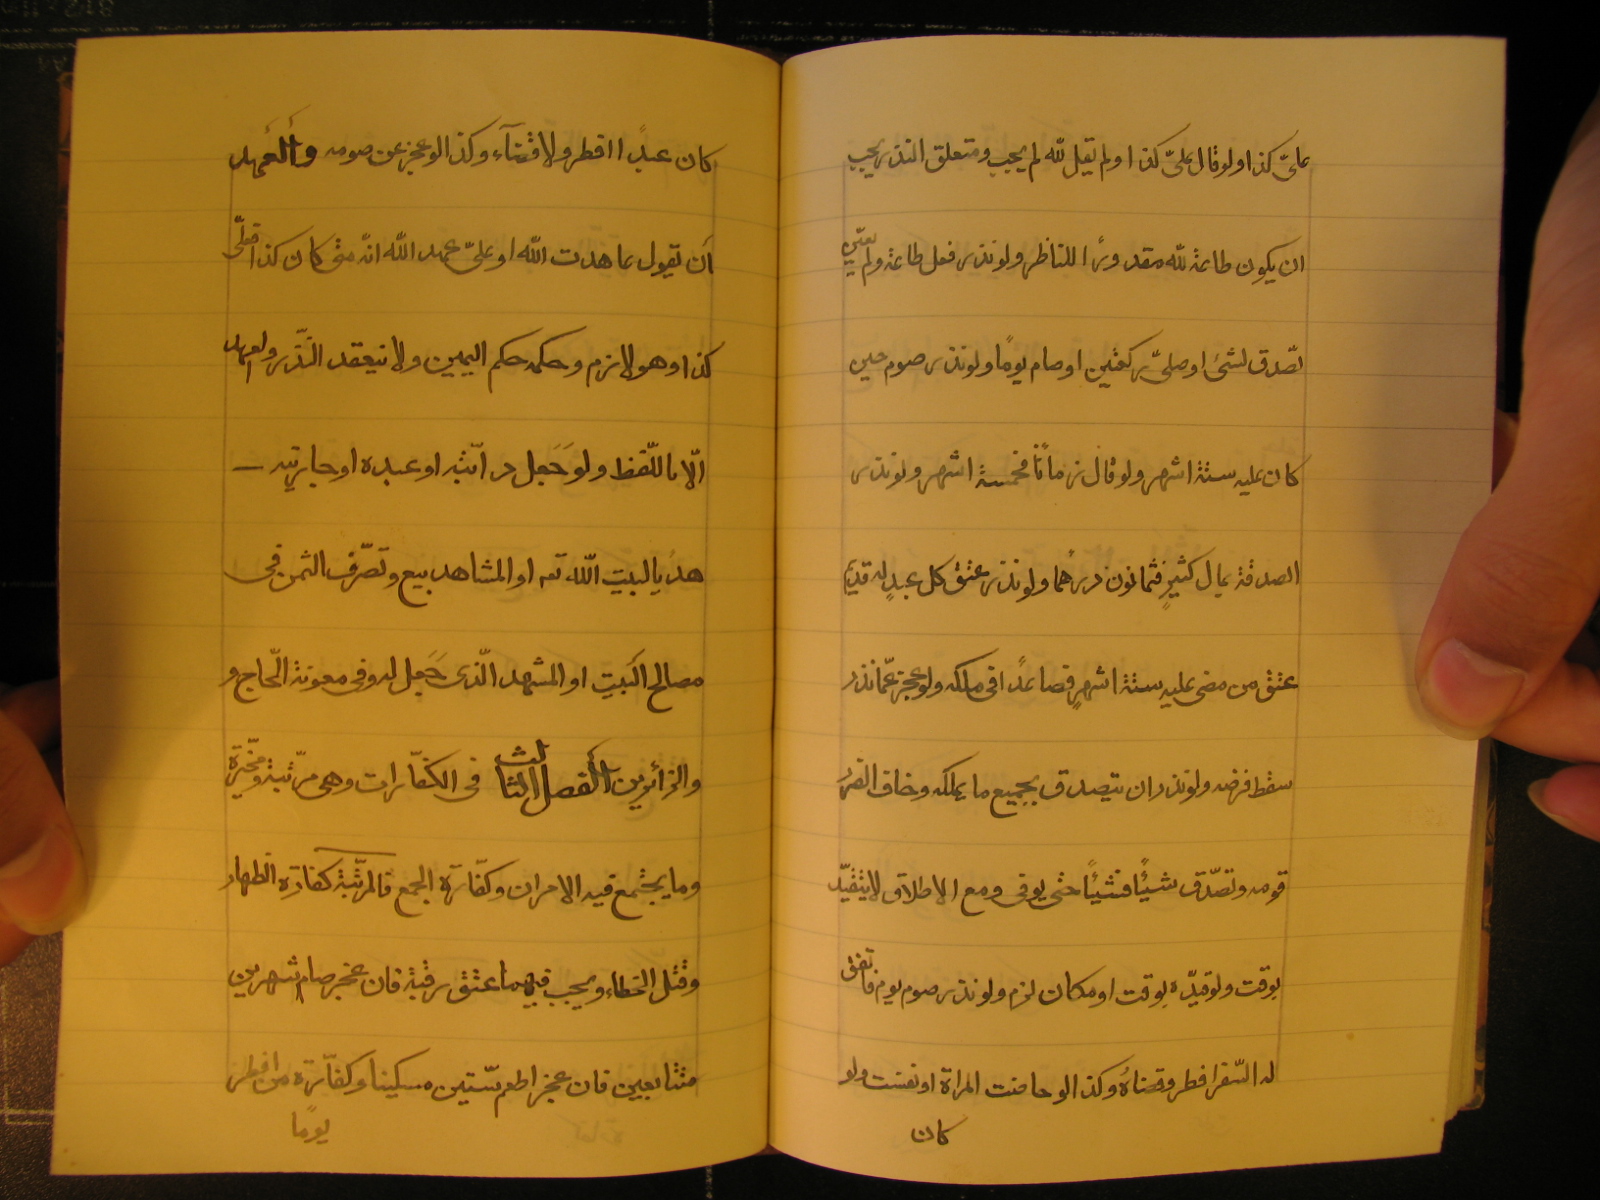 علىّ كذا ولو قال علىّ كذا ولم يقل لله لم يجب ومتعلق النذر يجب
ان يكون طاعة لله مقدورًا للناظر ولو نذر فعل طاعة ولم يعيّن
تصّدق لشئ او صلىّ ركعتين او صام يومًا ولو نذر صوم حين
كان عليه ستة اشهر ولو قال زمانًا فخمسة اشهر ولو نذر
الصدقة بمال كثيرٍ فثمانون درهمًا ولو نذر عتق كل عبدٍ له قديم
عتق من مضى عليه ستة اشهرٍ فصاعدًا فى ملكه ولو عجز عمّا نذر
سقط فرضه ولو نذر ان يتصدق بجميع ما يملكه وخاف الضرر
قومه وتصّدق شيئًا فشيئًا حتى يوفى ومع الاطلاق لا يتقيّد
بوقت ولو قيدّه بوقت او مكان لزم ولو نذر صوم يوم فاتفق
له السّفر افطر وقضاهُ وكذا لو حاضت المراة او نفست ولو
كان
كان عيدًا افطر ولا قضآء وكذا لو عجز عن صومه والعهد
أن يقول عاهدت الله او علىّ عهد الله انّه متى كان كذا فعلّى
كذا وهو لازم وحكمه حكم اليمين ولا ينعقد النّذر والعهد
الّا باللّفظ ولو جَعل دابّته او عبده او جاريته —
هديا لبيت الله تعه او المشاهد بيع وتصّرف الثمن فى
مصالح البَيت او المشهد الّذى جَعل له وفى معونة الحّاج و
والزائرين الفصل الثالث فى الكفّارات وهى مرّتبة ومخّيرة
وما يجتمع فيه الامران وكفّارة الجمع فالمرتّبة كفارة الظهار
وقتل الخطاء ويجب فيهما عتق رقبة فان عجز صام شهرين
متتابعين فان عجز اطعم ستّين مسكينا وكفّارة من افطر
يومًا